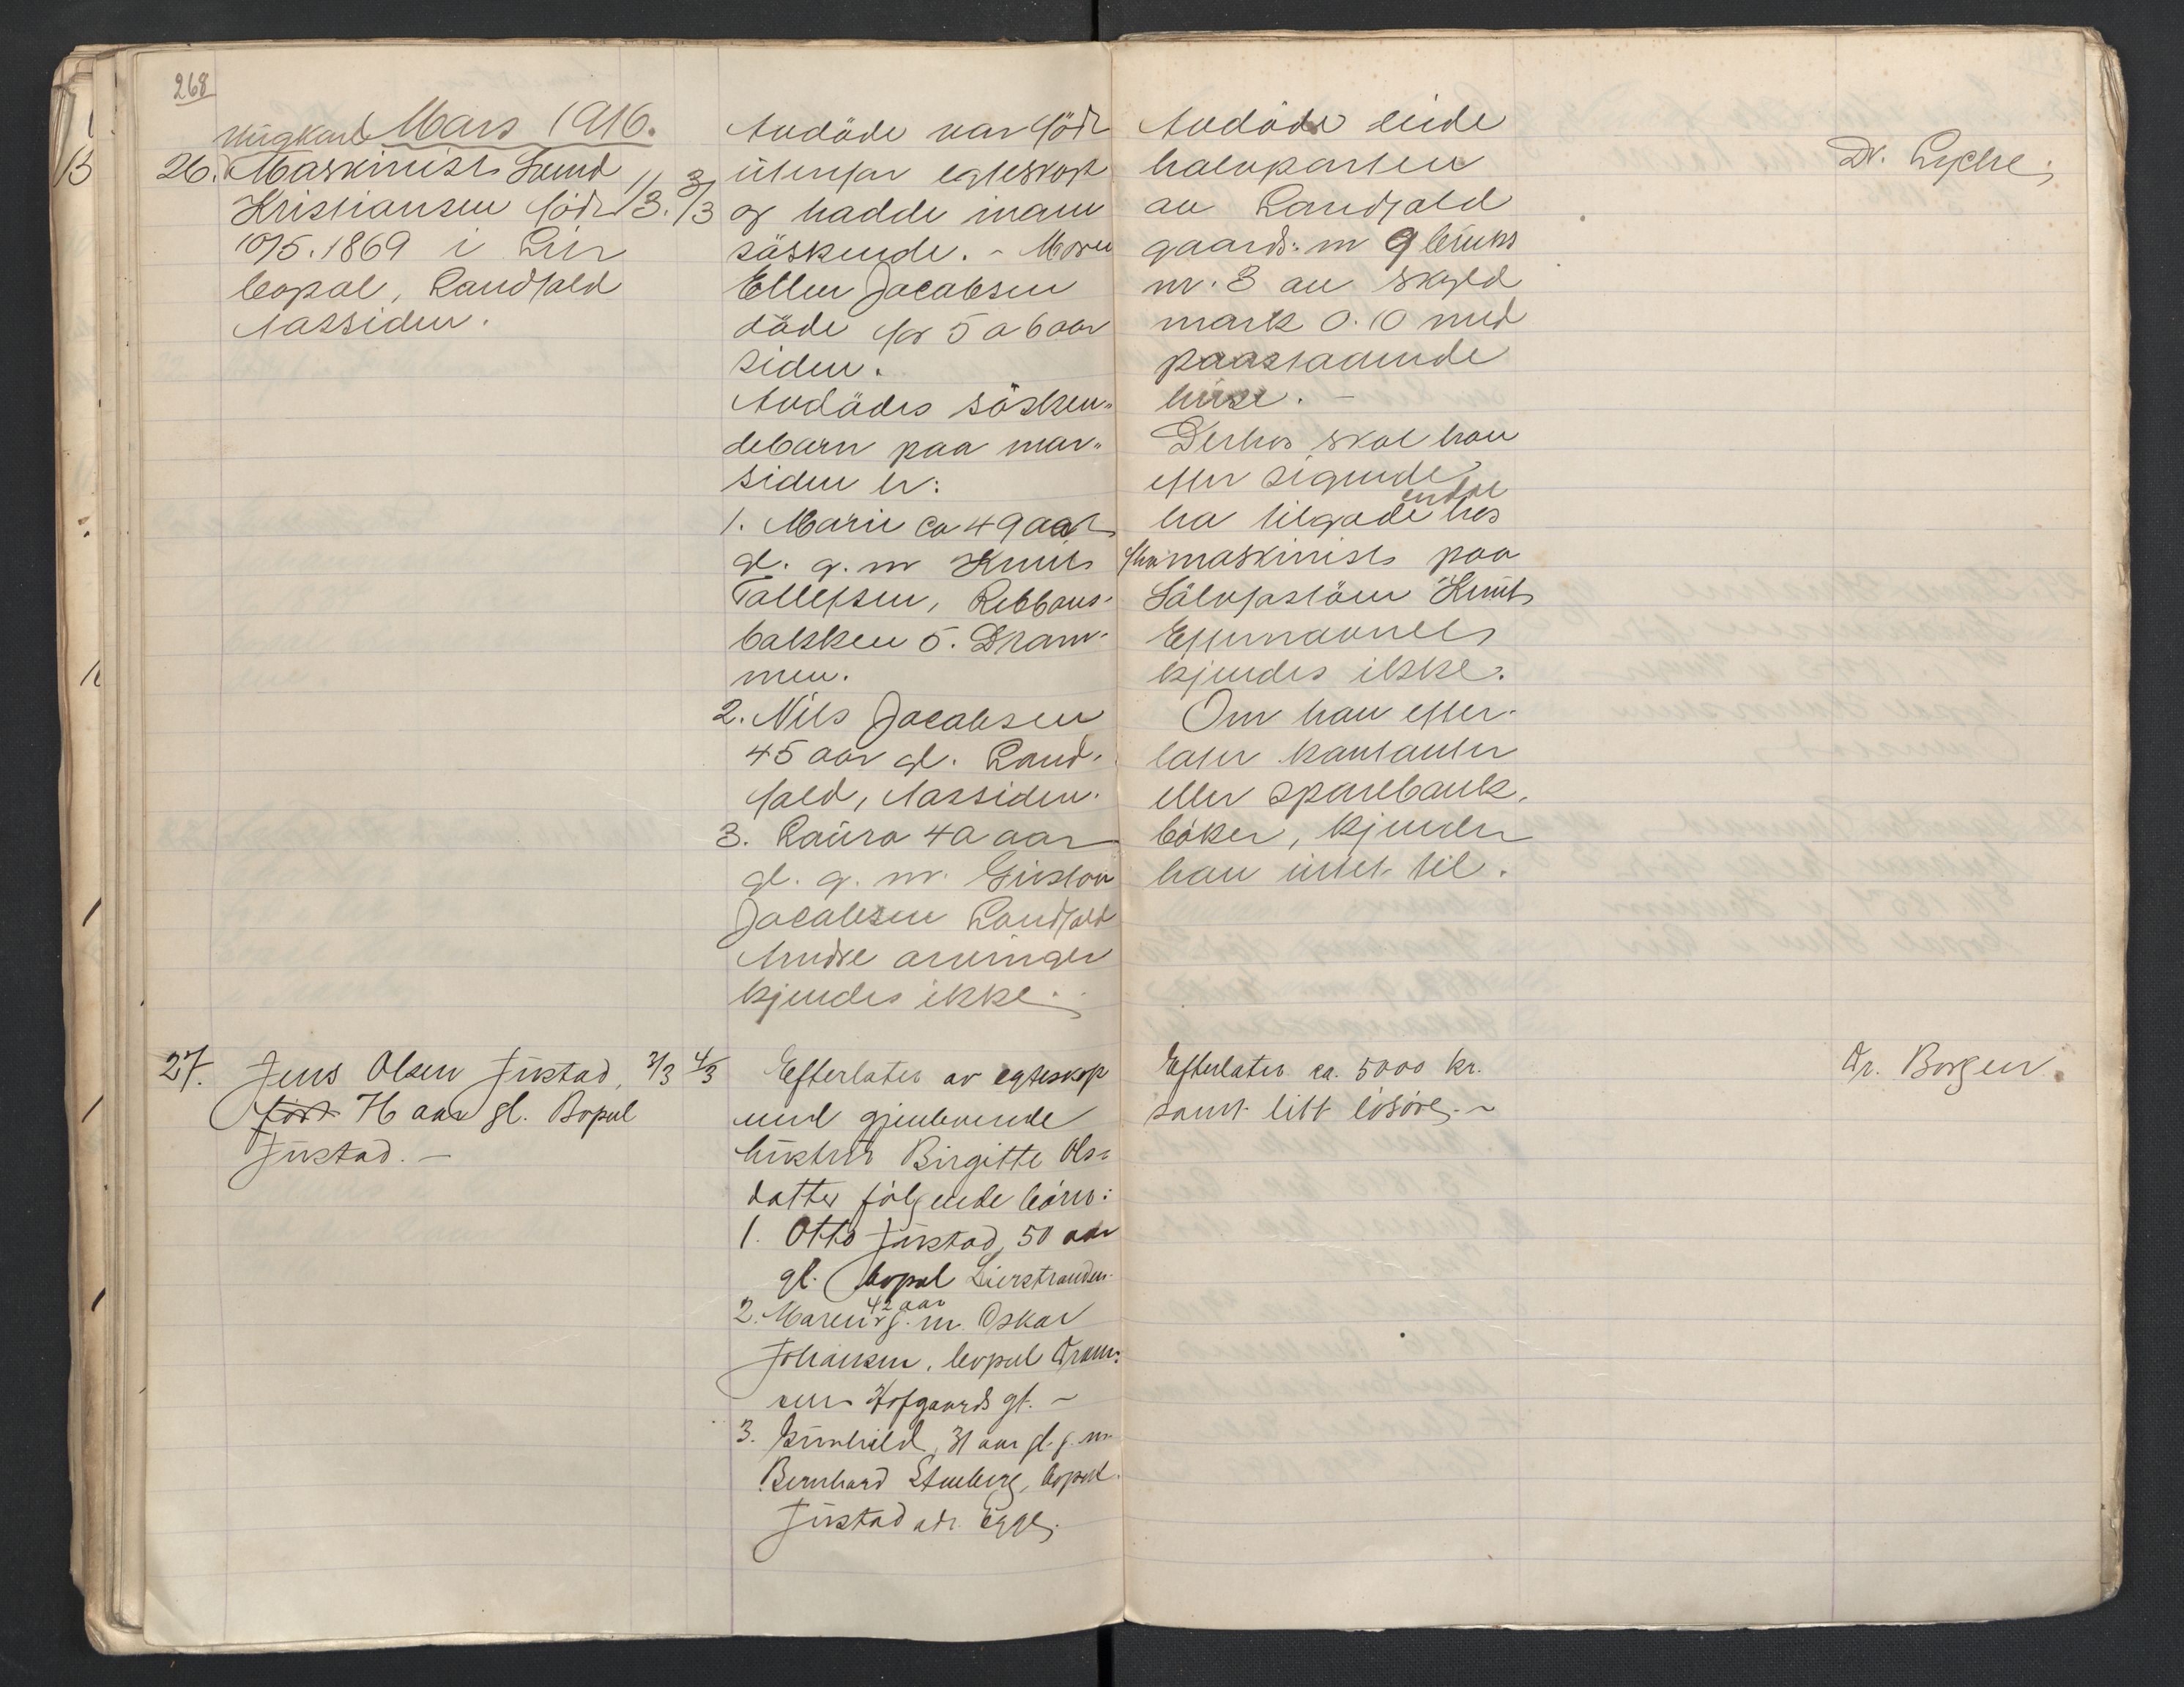 268
Mars 1916.
ungkarl
26. Maskinist Lund
Kristiansen född
10/5. 1869 i Lier
bopæl, Landfald
Aassiden.
1/3. 3/3
Avdöde var född
utenfor egteskap
og hadde ingen
söskende. - Moren
Ellen Jacobsen
döde for 5 a 6 aar
siden.
Avdödes sösken-
debarn paa mor-
siden er:
1. Marie ca 49 aar
gl. g. m Knut
Tollefsen,
bakken 5. Dram-
men.
2. Nils Jacobsen
45 aar gl. Land-
fald, Aassiden.
3. Laura 40 aar
gl. g. m. Gustav
Jacobsen Landfald
Andre arvinger
kjendes ikke.
Avdöde eiede
halvparten
av Landfald
gaards. nr 9 bruks
nr. 3 av skyld
mark 0.10 med
paastaaende
huse. -
Derhos skal han
efter sigende
ha tilgode endel hos
fhv maskinist paa
Sölvfastöen Knut
Efternavnet
kjendes ikke.
Om han efter-
later kontanter
eller sparebank-
böker, kjender
han intet til.
Dr. Lyche
27. Jens Olsen Justad, 3/3 4/3
född 76 aar gl. Bopæl
Justad. -
Efterlater av egteskap
med gjenlevende
hustru Birgitte Ols-
datter fölgende börn:
1. Otto Justad, 50 aar
gl. bopæl Lierstranden.
2. Maren 42 aar g. m. Oskar
Johansen, bopæl Dram-
men Hofgaards gt. -
3. Gunhild, 31 aar gl. g. m.
Bernhard Stenberg, bopæl
Justad adr. Egge.
Efterlater ca. 5000 kr.
samt litt lösöre. -
Dr. Borgen.